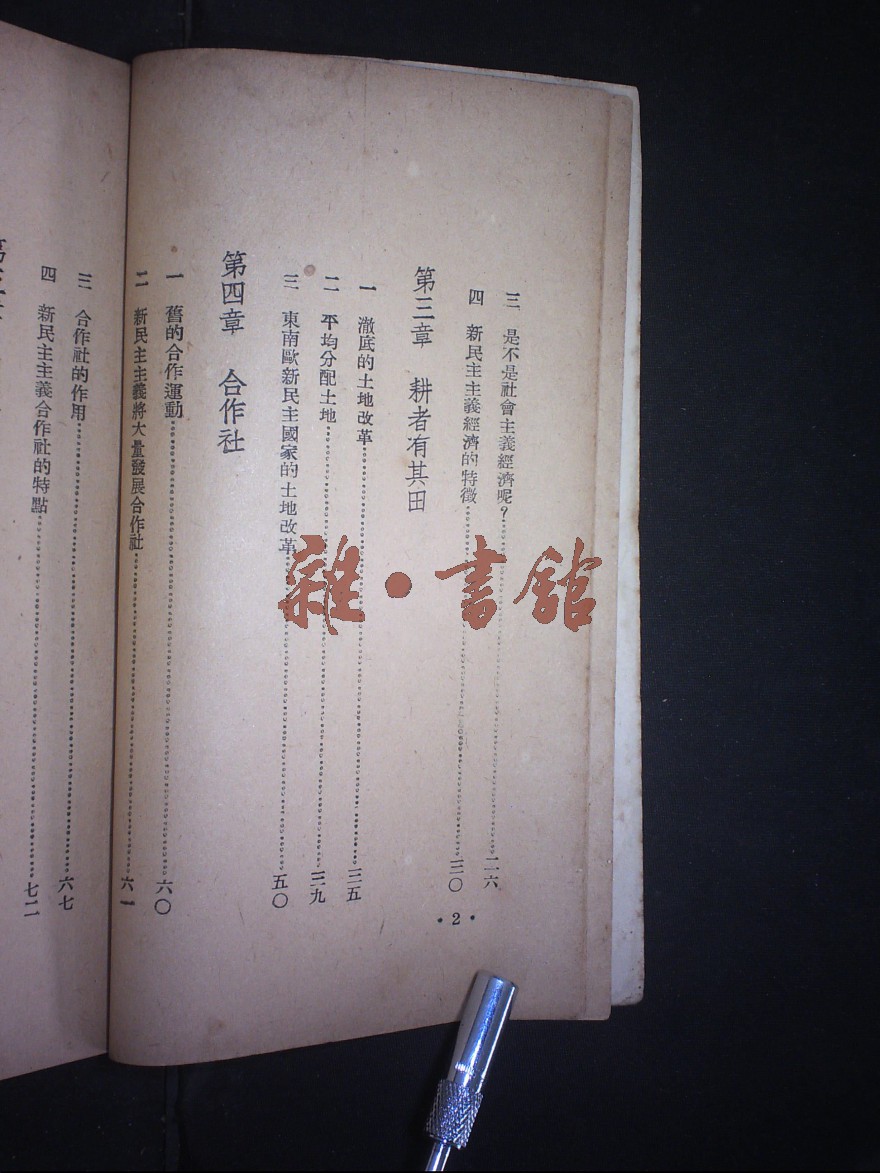 三　是不是社會主義經濟呢？……二六
四　新民主主義經濟的特徵……三〇
第三章　耕者有其田
一　澈底的土地改革……三五
二　平均分配土地……三九
三　東南歐新民主國家的土地改革……五〇
第四章　合作社
一　舊的合作運動……六〇
二　新民主主義將大量發展合作社……六一
三　合作社的作用……六七
四　新民主主義合作社的特點……七二
·2·
雜·書館